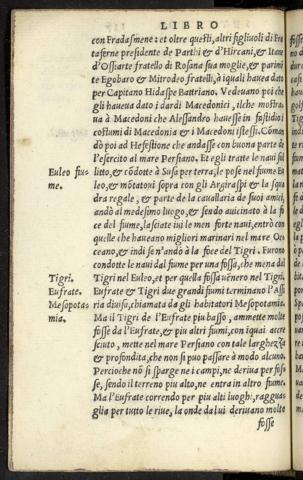 LIBRO
con Fradasmene: et oltre questi, altri figliuoli di Fra
taferne presidente de Parthi & d'Hircani, & Itane
d'Ossiarte fratello di Rosana sua moglie, & parimẽ
te Egobaro & Mitrodeo fratelli, à i quali hauea dato
per Capitano Hidaspe Battriano. Vedeuano poi che
gli haueua dato i dardi Macedonici, ilche mostra
ua à Macedoni che Alessandro hauesse in fastidioi
costumi di Macedonia & i Macedoni istessi. Cõmã
dò poi ad Hefestione che andasse con buona parte de
l'esercito al mare Persiano. Et egli tratte le naui sul
Euleo fiu
me.
litto, & cõdotte à Susa per terra, le pose nel fiume Eu
leo, & mõtatoui sopra con gli Argiraspi & la squa
dra regale, & parte de la cauallaria de suoi amici,
andò al medesimo luogo, & sendo auicinato à la fo
ce del fiume, lasciate iui le men forte naui, entrò con
quelle che haueano migliori marinari nel mare Oc
ceano, & indi se n'andò à la foce del Tigri. Eurono
condotte le naui dal fiume per una fossa, che mena dal
Tigri.
Eufrate.
Mesopota
mia.
Tigri nel Euleo, et per quella fossa uẽnero nel Tigri.
Eufrate & Tigri due grandi fiumi terminano l'Assi
ria diuisa, chiamata da gli habitatori Mesopotamia.
Ma il Tigri de l'Eufrate piu basso, ammette molte
fosse da l'Eufrate, & piu altri fumi, con i quai accre
scuto, mette nel mare Persiano con tale larghezza
& profondita, che non si puo passare à modo alcuno.
Percioche nõ si sparge ne i campi, ne deriua per fos
se, sendo il terreno piu alto, ne entra in altro fiume.
Ma l'Eufrate correndo per piu alti luoghi, raggua
glia per tutto le riue, la onde da lui deriuano molte
fosse